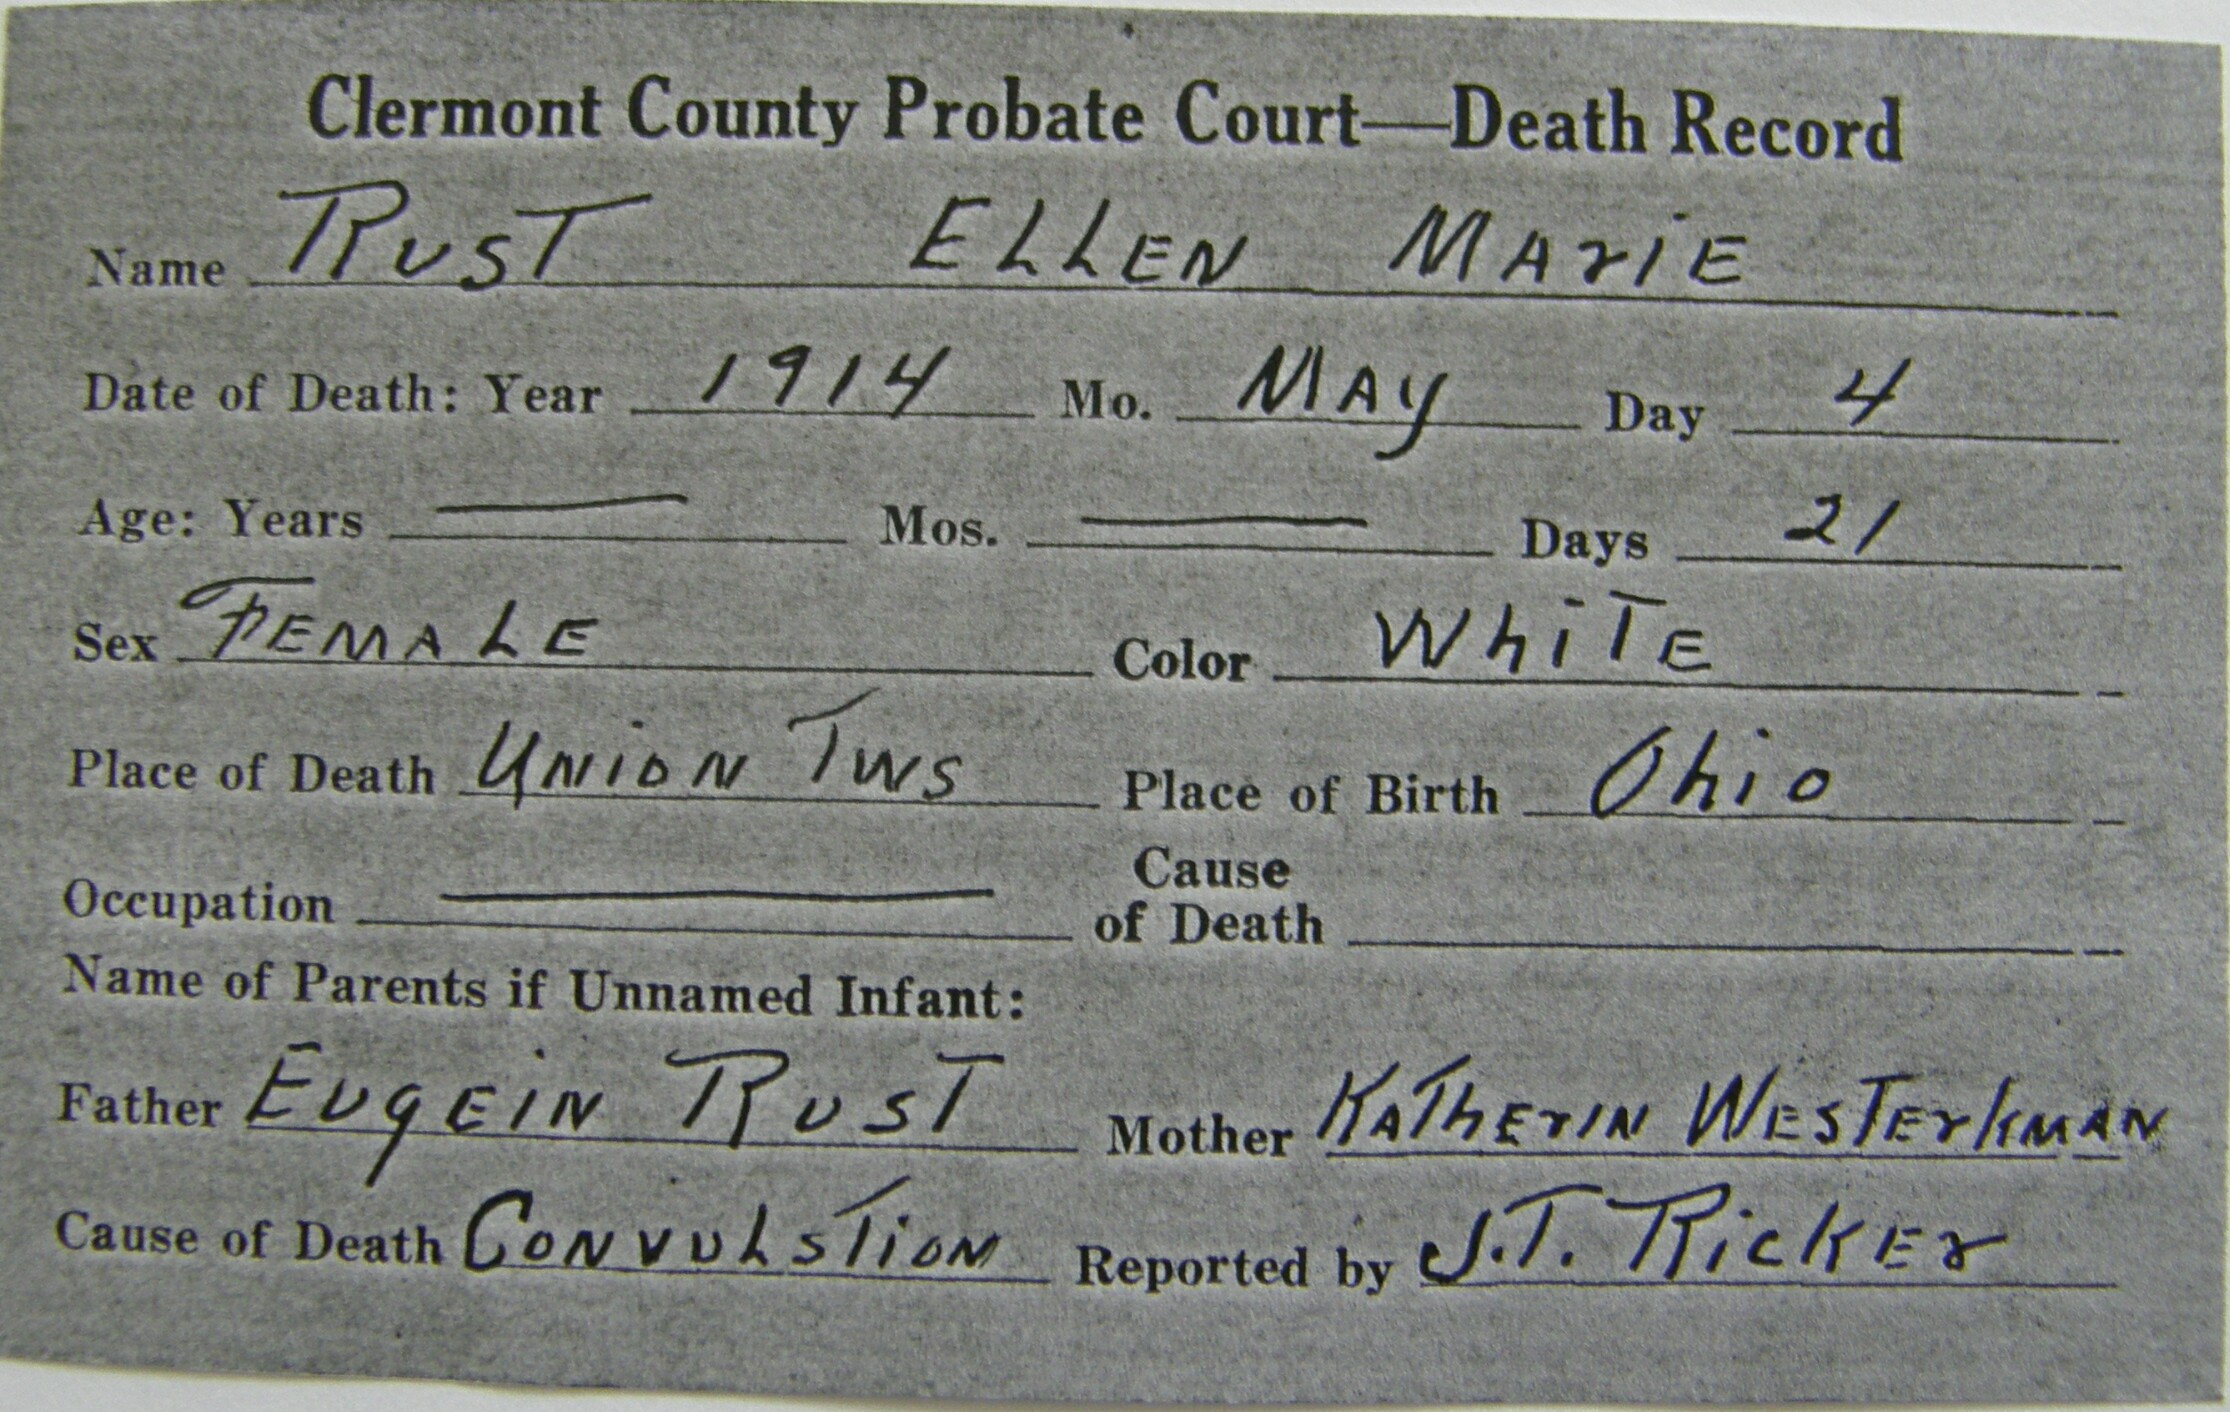 Clermont County Probate Court—Death Record
Name RUST ELLEN MArIE
Date of Death: Year 1914 Mo. MAY Day 4
Age: Years — Mos. — Days 21
Sex FEMALE Color WhiTE
Place of Death UNION TWS Place of Birth Ohio
Occupation — Cause of Death
Name of Parents if Unnamed Infant:
Father EUgEIN RUST Mother KATHErIN WESTErKMAN
Cause of Death CONVULSTION Reported by J.T. RicKEr